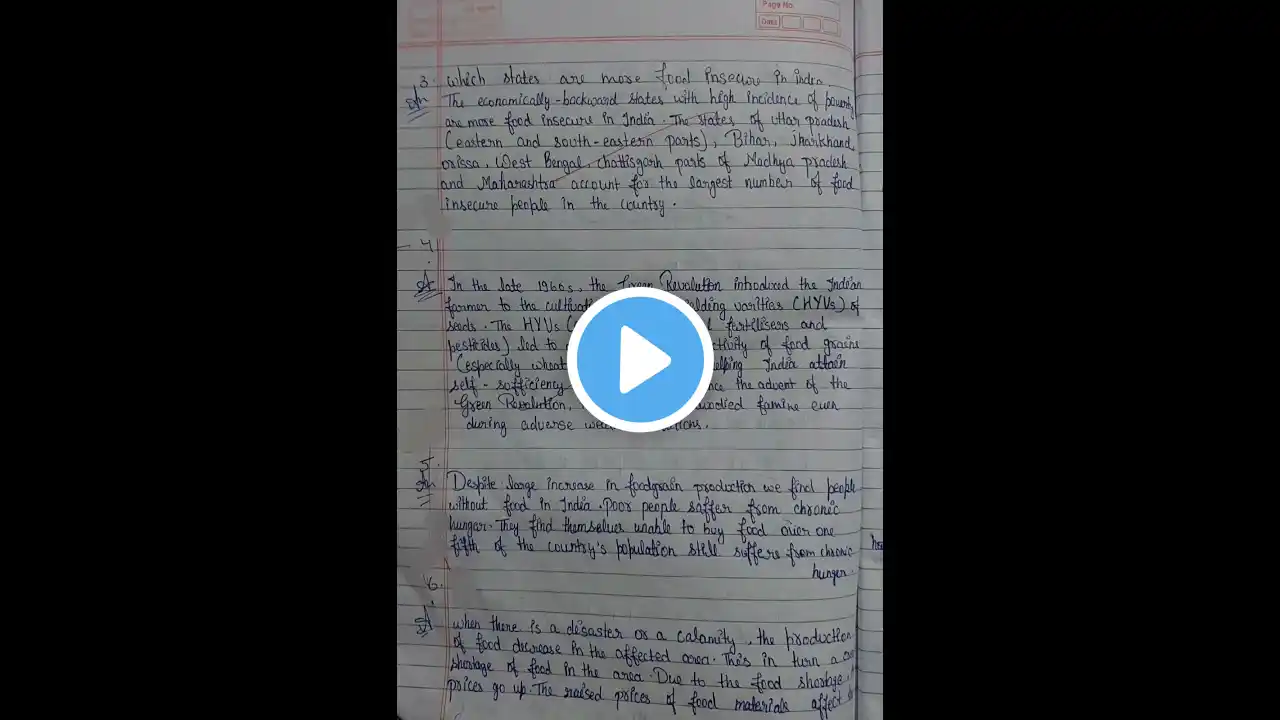 Page No.
Date
3. which states are more food insecure in india.
Ans The economically-backward states with high incidence of poverty
are more food insecure in India. The states of uttar pradesh
(eastern and south-eastern parts), Bihar, Jharkhand,
orissa, West Bengal, chattisgarh parts of Madhya pradesh
and Maharashtra account for the largest number of food
insecure people in the country.
4.
A. In the late 1960s, the Green Revolution introduced the Indian
farmer to the cultivati ielding varities (HYVs) of
seeds. The HYVs ( l fertilisers and
pesticides) led to ctivity of food grains
(especially wheat elping India attain
self-sufficiency nce the advent of the
Green Revolution, famine even
during adverse wea tions.
5.
Ans Despite large increase in foodgrain production we find people
without food in India. Poor people saffer from chronic
hungar. They find themselves unable to buy food over one
fifth of the country's population still suffers from chronic
hunger.
6.
A. when there is a disaster or a calamity, the production
of food decrease in the affected area. This in turn a
shortage of food in the area. Due to the food shortage,
prices go up. The raised prices of food materials affect